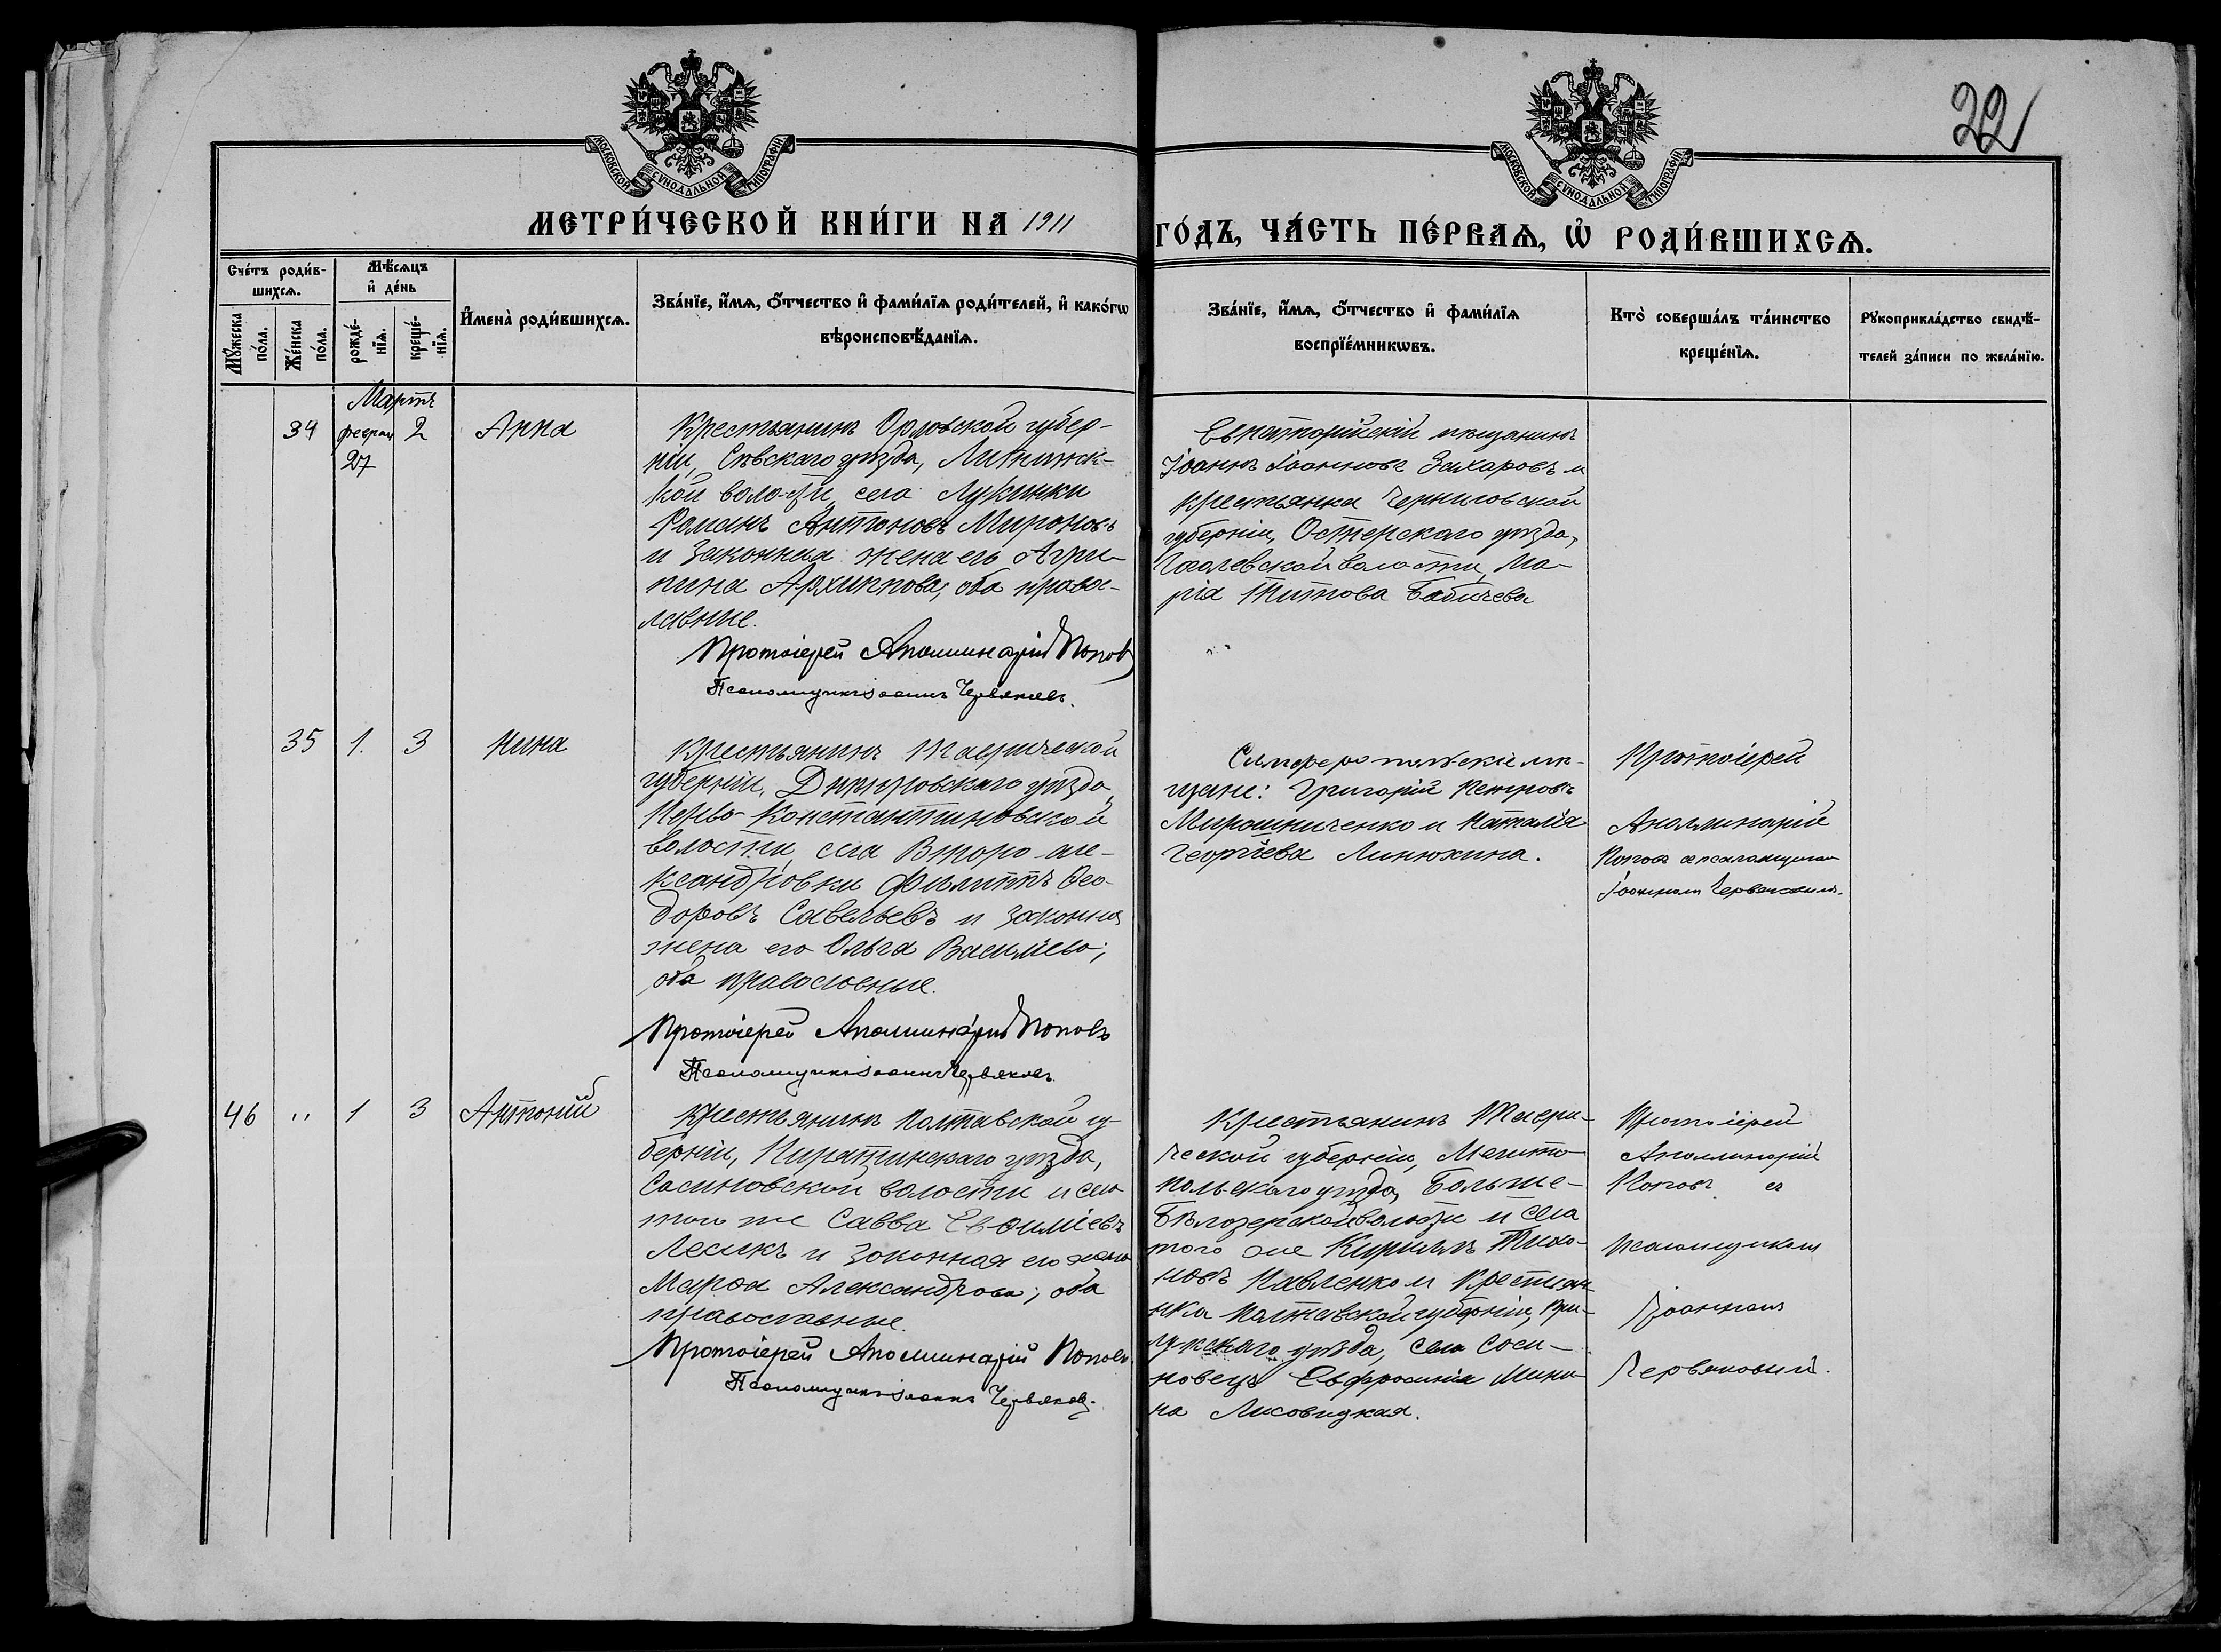 22
МОСКОВСКОЙ СУНОДАЛЬНОЙ ТИПОГРАФІИ
МОСКОВСКОЙ СУНОДАЛЬНОЙ ТИПОГРАФІИ
МЕТРИ́ЧЕСКОЙ КНИ́ГИ НА 1911
ГО́ДЪ, ЧА́СТЬ ПЕ́РВАѦ, Ѡ҆ РОДИ́ВШИХСѦ.
Сче́тъ роди́в-
шихсѧ.
Мꙋ́жеска
по́ла.
Же́нска
по́ла.
Мѣ́сѧцъ
и҆ де́нь
рожде́-
нїѧ.
креще́-
нїѧ.
И҆мена̀ роди́вшихсѧ.
Зва́нїе, и҆́мѧ, ѻ҆́тчество и҆ фами́лїѧ роди́телей, и҆ како́гѡ
вѣроисповѣ́данїѧ.
Зва́нїе, и҆́мѧ, ѻ҆́тчество и҆ фами́лїѧ
воспрїе́мникѡвъ.
Кто̀ соверша́лъ та́инство
креще́нїѧ.
Рꙋкоприкла́дство свидѣ́-
телей за́писи по жела́нїю.
Мартъ
34 феврал 2 Анна
27
Крестьянинъ Орловской губер-
ніи, Сѣвскаго уѣзда,
кой волости, села Лукинки
Романъ Антоновъ Мироновъ
и законная жена его Агри-
пина Архиппова; оба правос-
лавные.
Протоіерей Аполлинарій Поповъ
Псаломщикъ Іоаннъ Червяковъ.
Евпаторійскій мѣщанинъ
Іоаннъ Іоанновъ Захаровъ и
крестьянка Черниговской
губерніи, Остерскаго уѣзда,
волости, Ма-
рія Титова Бабичева
35 1. 3 Нина
Крестьянинъ Таврической
губерніи, Днѣпровскаго уѣзда,
Перво-Константиновской
волости, села Второ-але-
ксандровки Филиппъ Ѳео-
доровъ Савельевъ и законная
жена его Ольга Василіева;
оба православные.
Протоіерей Аполлинарій Поповъ
Псаломщикъ Іоаннъ Червяковъ.
Симферопольскіе мѣ-
щане: Григорій Петровъ
Мирошниченко и Наталія
Георгіева Линюхина.
Протоіерей
Аполлинарій
Поповъ съ псаломщикомъ
Іоанномъ Червяковымъ.
46 " 1 3 Антоній
Крестьянинъ Полтавской гу-
берніи, Пирятинскаго уѣзда,
Сасиновской волости и села
того же Савва Евѳиміевъ
Лесикъ и законная его жена
Марѳа Александрова; оба
православные.
Протоіерей Аполлинарій Поповъ.
Псаломщикъ Іоаннъ Червяковъ.
Крестьянинъ Таври-
ческой губерніи, Мелито-
польскаго уѣзда, Больше-
Бѣлозерской волости и села
того же Кириллъ Тихо-
новъ Павленко и крестьян-
ка Полтавской губерніи, При-
лукскаго уѣзда, села Соси-
новецъ Евфросинія Мини-
на Лисовицкая.
Протоіерей
Аполлинарій
Поповъ съ
псаломщикомъ
Іоанномъ
Червяковым.